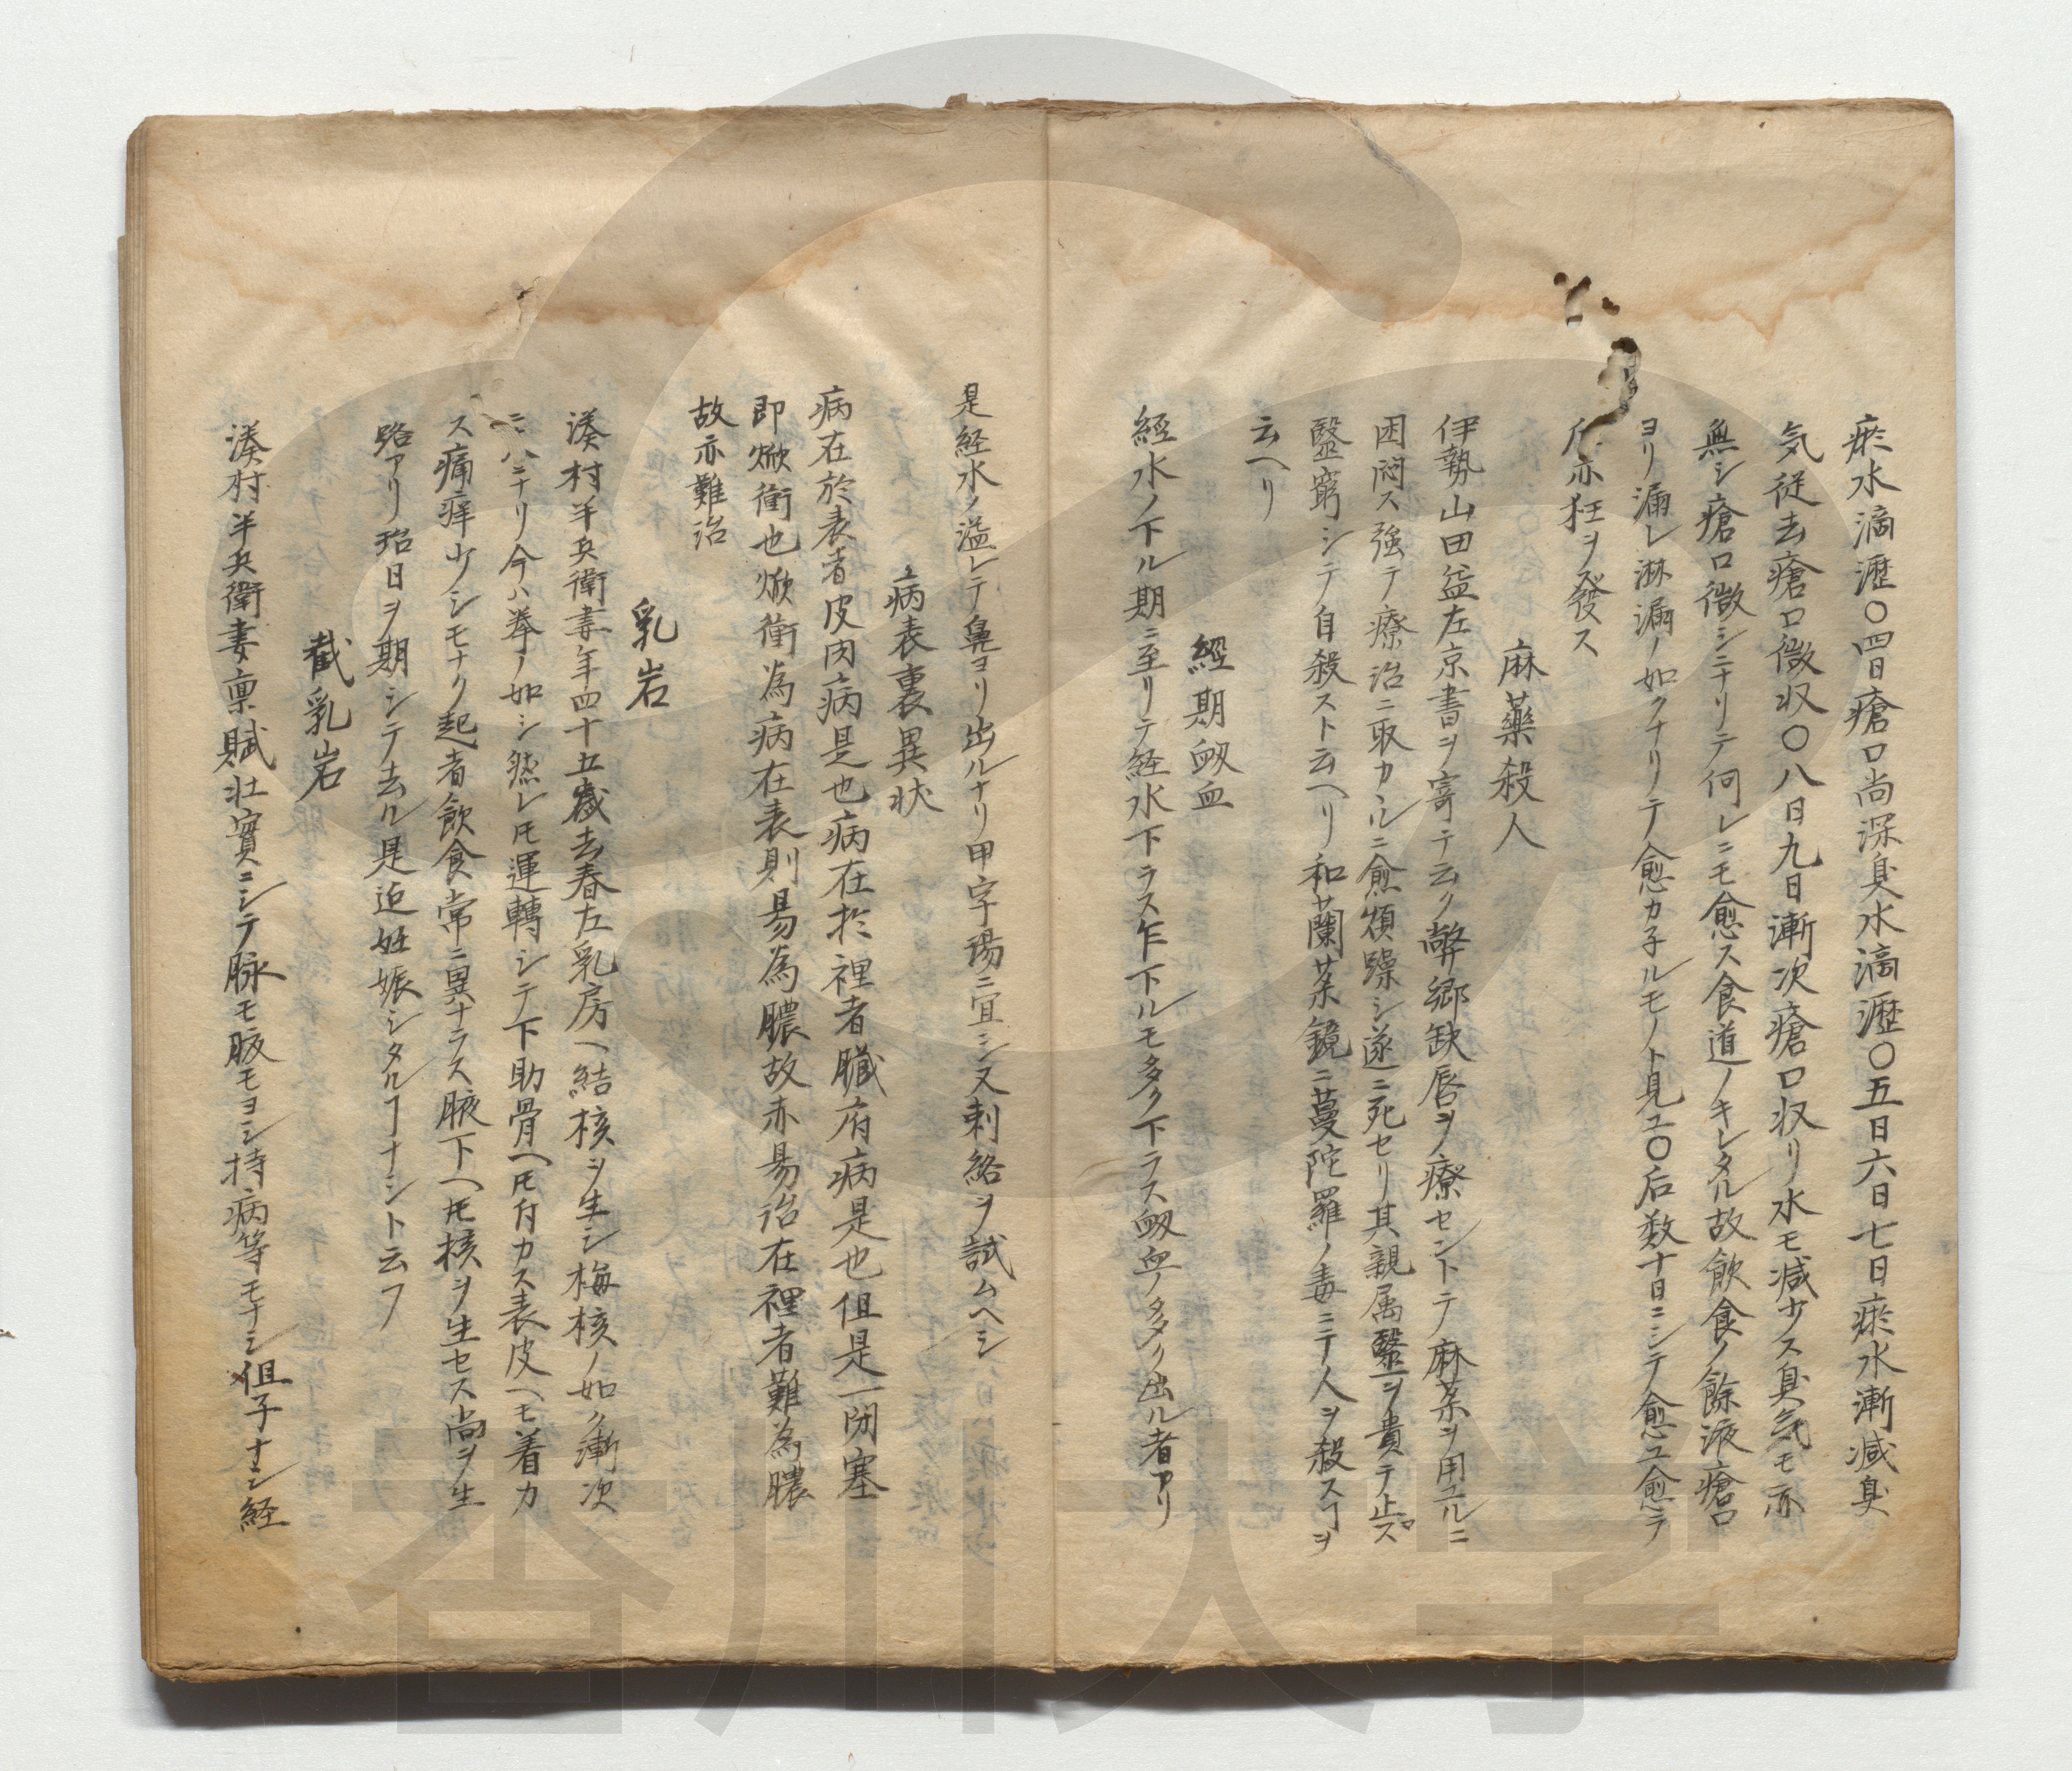 瘀水滴瀝〇四日瘡口尚深臭水滴瀝〇五日六日七日瘀水漸減臭
気従去瘡口微収〇八日九日漸次瘡口収リ水モ減少ス臭気モ亦
無シ瘡口微シニナリテ何レニモ愈ス食道ノキレタル故飲食ノ餘液瘡口
ヨリ漏レ淋漏ノ如クナリテ愈カ子ルモノト見ユ〇后数十日ニシテ愈ユ愈テ
后亦狂ヲ發ス
麻藥殺人
伊勢山田益左京書ヲ寄テ云ク弊郷缺唇ヲ療セントテ麻薬ヲ用ユルニ
困悶ス強テ療治ニ取カヽルニ愈煩躁シ遂ニ死セリ其親属醫ヲ責テ止ズ
醫窮シテ自殺スト云ヘリ和蘭薬鏡ニ蔓陀羅ノ毒ニテ人ヲ殺スヿヲ
云ヘリ
經期衂血
經水ノ下ル期ニ至リテ経水下ラス乍下ルモ多ク下ラス衂血ノ多ク出ル者アリ
是経水ノ溢レテ鼻ヨリ出ルナリ甲字湯ニ宜シ又刺絡ヲ試ムヘシ
病表裏異状
病在於表者皮肉病是也病在於裡者臓府病是也但是一閉塞
即焮衝也焮衝為病在表則易為膿故亦易治在裡者難為膿
故亦難治
乳岩
湊村半兵衛妻年四十五歳去春左乳房ヘ結核ヲ生シ梅核ノ如ク漸次
ニハナリ今ハ拳ノ如シ然レ𪜈運轉シテ下肋骨ヘ𪜈付カス表皮ヘモ着カ
ス痛痒少シモナク起者飲食常ニ異ナラス腋下ヘ𪜈核ヲ生セス尚ヲ生
路アリ殆日ヲ期シテ去ル是迄妊娠シタルヿナシト云フ
截乳岩
湊村半兵衛妻稟賦壮實ニシテ脉モ腹モヨシ持病等モナシ但子ナシ経